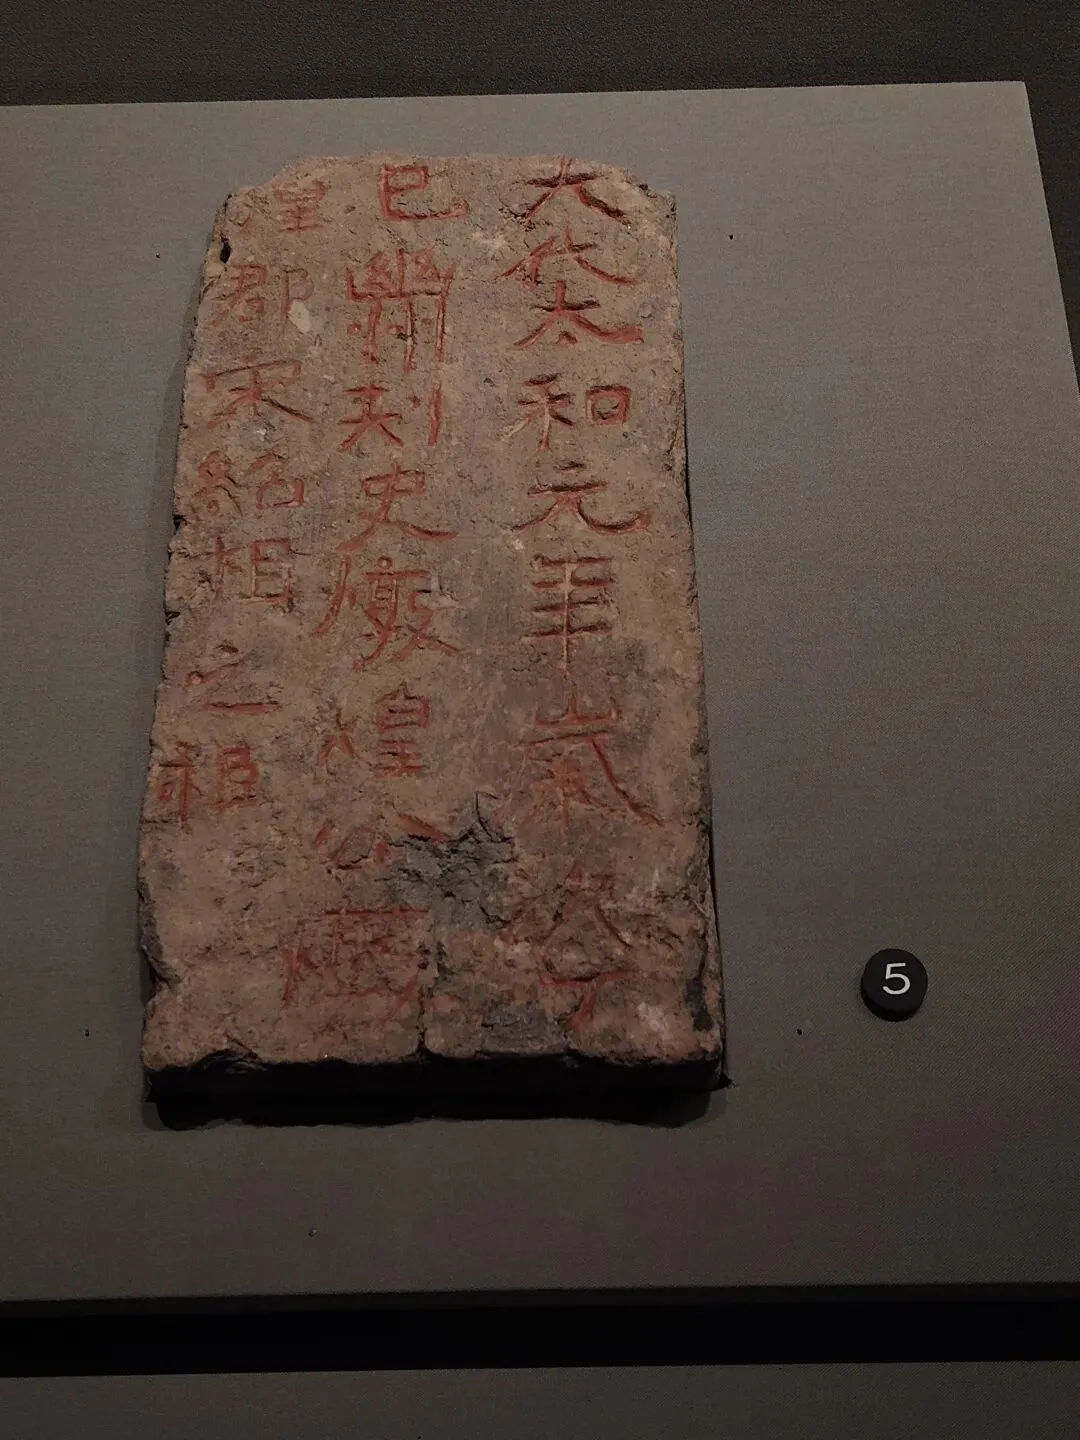 大代太和元年歲次丁
巳幽州刺史敦煌公敦
煌郡宋紹祖之柩
5